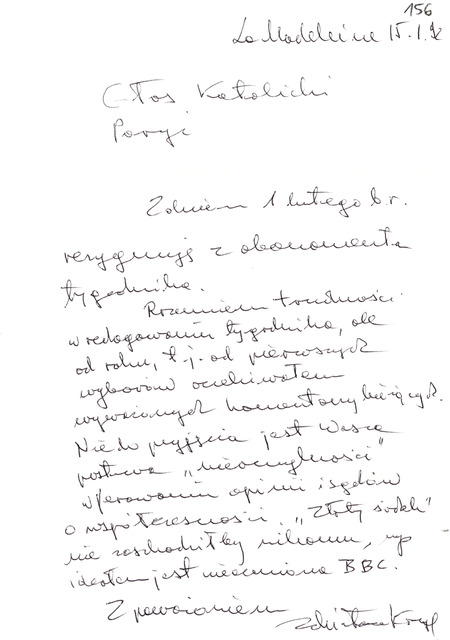 156
La Madeleine 15.1.92
Głos Katolicki
Paryż
Z dniem 1 lutego b.r.
rezygnuję z abonamentu
tygodnika.
Rozumiem trudności
w redagowaniu tygodnika, ale
od roku, t.j. od pierwszych
wyborów oczekiwałem
wyważonych komentarzy bieżących.
Nie do przyjęcia jest Wasza
postawa „nieomylności”
w ferowaniu opinii i sądów
o współczesności. „Złoty środek”
nie zaszkodziłby nikomu, np
ideałem jest nieoceniona BBC.
Z poważaniem